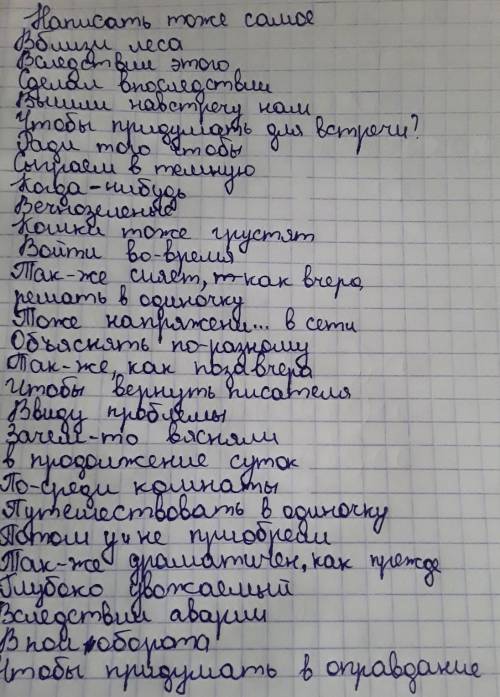 Написать тоже самое
Вблизи леса
Вследствии этого
Сделам впоследствии
Вышли навстречу нам
Чтобы придумать для встречи?
Ради того чтобы
Сыграем в темную
Когда-нибудь
Вечнозеленые
Кошки тоже грустят
Войти во-время
Так-же сияет, как вчера,
решать в одиночку
Тоже напряжени... в сети
Объяснять по-разному
Так-же, как позавчера
Чтобы вернуть писателя
Ввиду проблемы
Зачем-то вясняли
в продолжение суток
По-среди комнаты
Путешествовать в одиночку
Потом не приобрели
Так-же драматичен, как прежде
Глубоко уважаемый
Вследствии аварии
В пол оборота
Чтобы придумать в оправдание